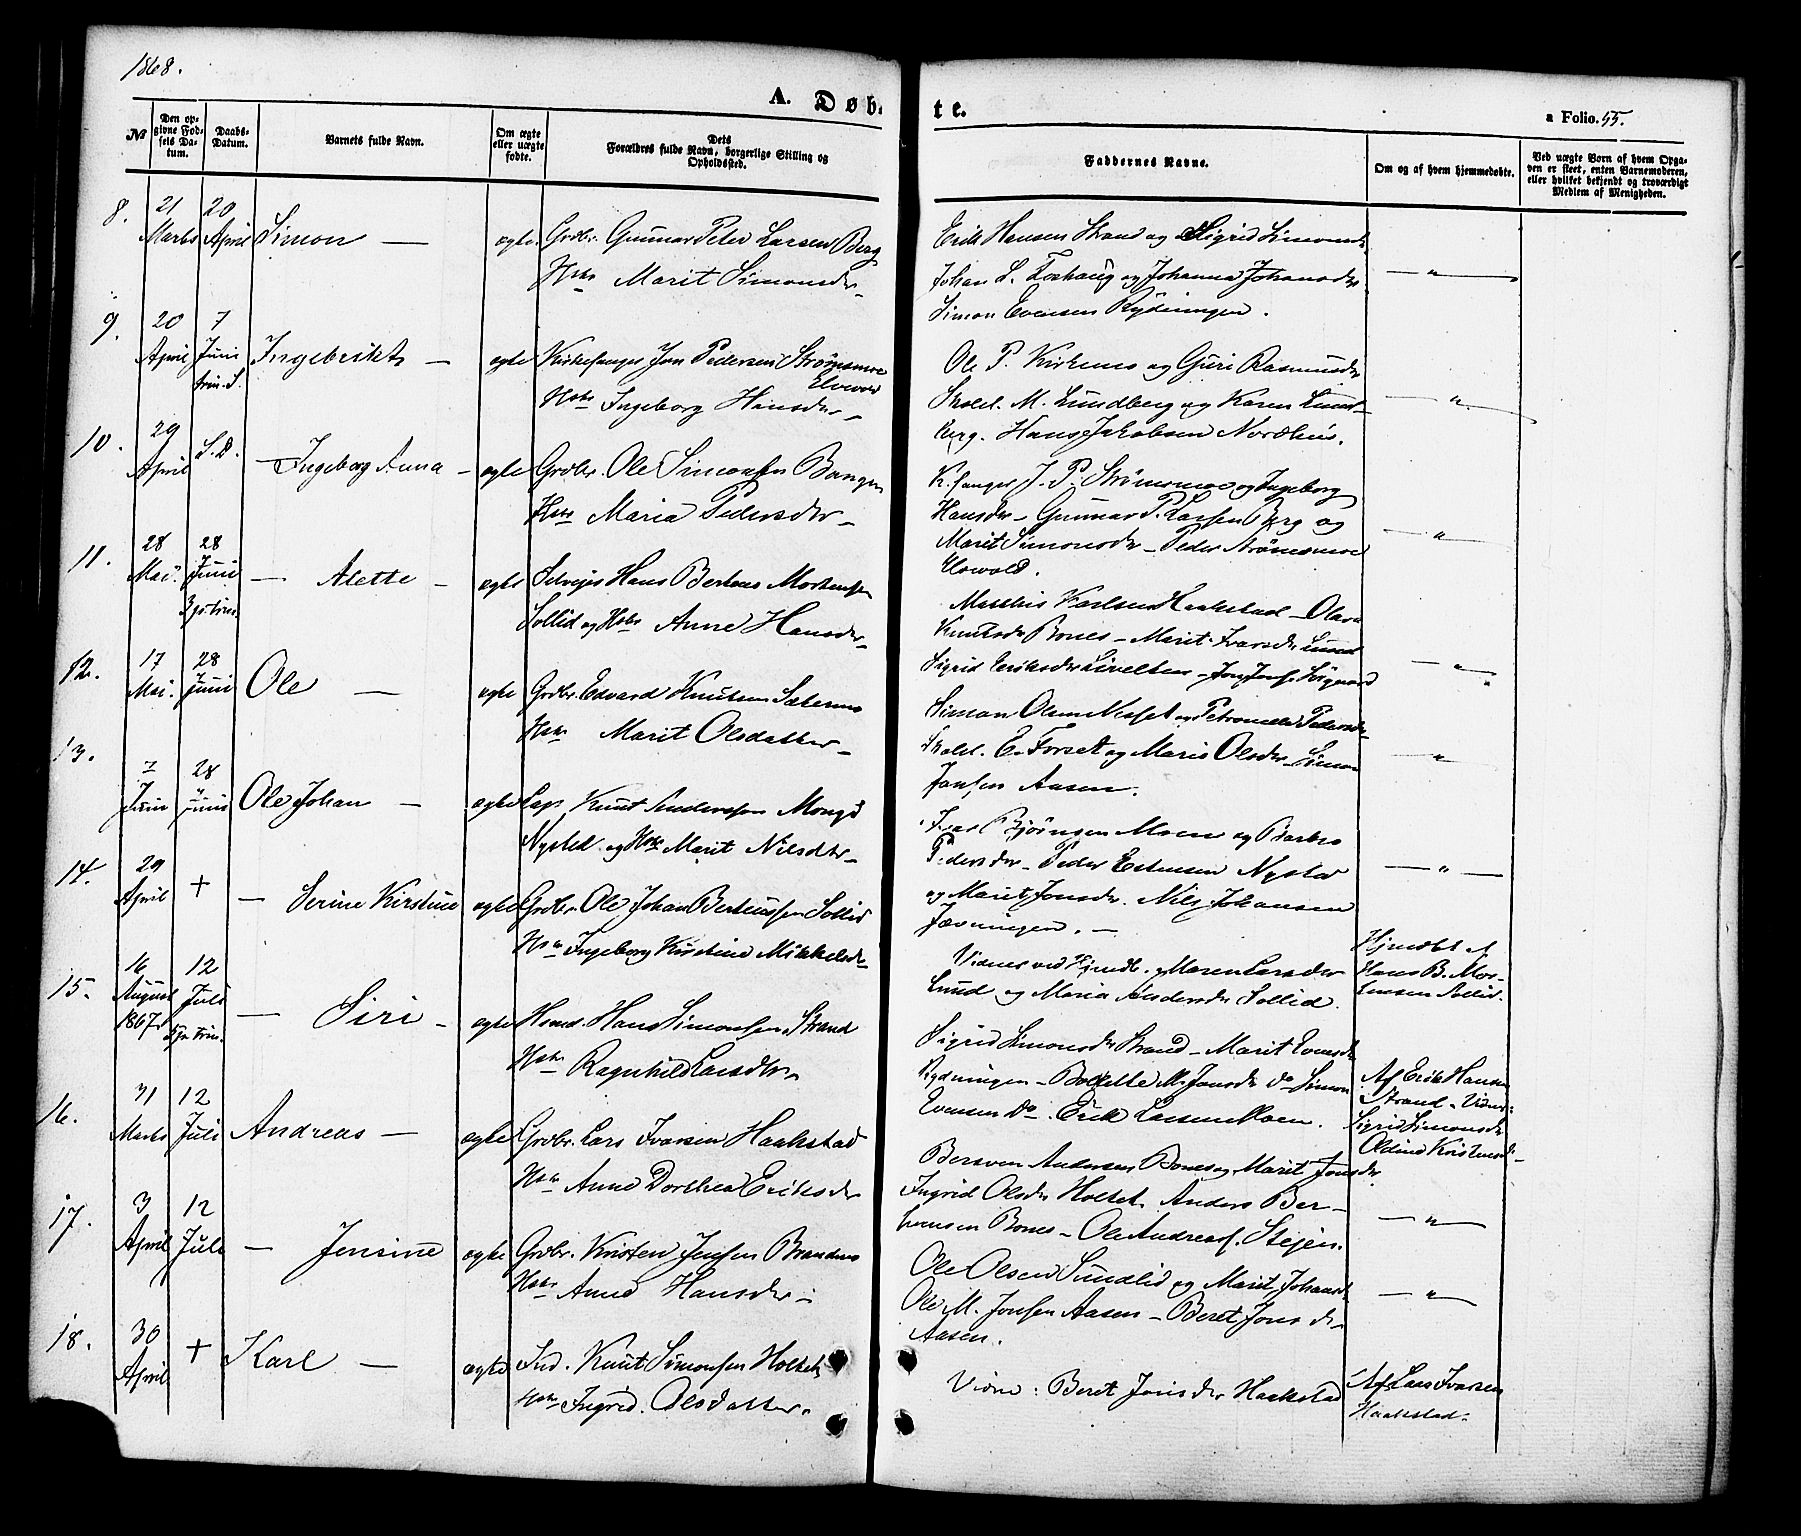 1868.
A. Døbte.
a Folio. 55.
№
Den opgivne Fødsels Datum.
Daabs-Datum.
Barnets fulde Navn.
Om ægte eller uægte fødte.
Dets Forældres fulde Navn, borgerlige Stilling og Opholdssted.
Faddernes Navne.
Om og af hvem hjemmedøbte.
Ved uægte Børn af hvem Opgaven er skeet, enten Barnemoderen, eller hvilket bekjendt og troværdigt Medlem af Menigheden.
8. 21 Marts 20 April Simon — ægte Grdbr. Gunnar Peter Larsen Berg
Hstr Marit Simonsdr
Erik Hansen Strand og Sigrid Simonsdr
Johan L. Foshaug og Johanna Johansdr — " —
Simon Evensen Rydningen.
9. 20 April 7 Juni Trin. S. Ingebrikt — ægte Kirkesanger Jon Pedersen Strømsmoe Elvevold
Hstr Ingeborg Hansdr
Ole P. Kirkemo og Guri Rasmusdr
Skolel. M. Lundberg og Karen Lund- — " —
berg. Hans Jakobsen Nordhus.
10. 29 April S. D. — Ingeborg Anna — ægte Grdbr. Ole Simonsen Bangen
Hstr Maria Pedersdr
K. sanger J. P. Strømsmoe og Ingeborg
Hansdr — Gunnar P. Larsen Berg og
Marit Simonsdr — Peder Strømsmoe — " —
Elvevold.
11. 28 Mai 28 Juni — Alette — ægte Selvejer Hans Berteus Mortensen
Sollid og Hstr Anne Hansdr
Matthis Karlsen Haakstad — Olava
Knutsdr Bones — Marit Ivarsdr Lund
Sigrid Eriksdr — " —
12. 17 Mai 28 Juni Ole — ægte Grdbr. Edvard Knutsen Sætermo
Hstr Marit Olsdatter
Simon Olsen Nesset og Petronelle Pedersdr
Skolel. E. Forset og Maris Olsdr — Simon — " —
Jonsen Aasen.
13. 7 Juni 28 Juni Ole Johan — ægte Lap. Knut Andersen Mongs
Nysted og Hstr Marit Nilsdtr
Ivar Bjørngen Moen og Barbro
Pedersdr — Peder Estensen Nystad — " —
og Marit Jonsdr. Nils Johansen
Jævningen. —
14. 29 April + — Serine Kirstine ægte Grdbr. Ole Johan Berteussen Sollid
Hstr Ingeborg Kirstine Mikkelsdr
Vidner ved Hjmdb. Maren Larsdr
Lund og Maria Andersdr Sollid.
Hjmdbt af
Hans B. Mor-
tensen Sollid.
15. 16 August 1867 12 Juli — Siri — ægte Hmd. Hans Simonsen Strand
Hstr Ragnhild Larsdtr
Sigrid Simonsdr Strand — Marit Evensdr
Rydningen — Bollette M. Jonsdr do Simon
Evensen do. Erik Larsen Moen.
Af Erik Hansen
Strand — Vidner:
Sigrid Simonsdr
Oldine Kristensd
16. 31 Marts 12 Juli Andreas — ægte Grdbr. Lars Ivarsen Haakstad
Hstr Anne Dorthea Eriksdr
Bersven Andersen Bones og Marit Jonsdr
Ingrid Olsdr Holtet. Anders Ber-
svensen Bones — Ole Andreas. Stejen. — " —
17. 3 April 12 Juli — Jensine ægte Grdbr. Kristen Jensen Brandmo
Hstr Anne Hansdr
Ole Olsen Sundlid og Marit Johansd
Ole M. Jonsen Aasen — Beret Jonsdr — " —
Aasen.
18. 30 April + Karl — ægte Ind. Knut Simonsen Holtet
Hstr Ingrid Olsdatter
Vidne: Beret Jonsdr Haakstad
Af Lars Ivarsen
Haakstad.